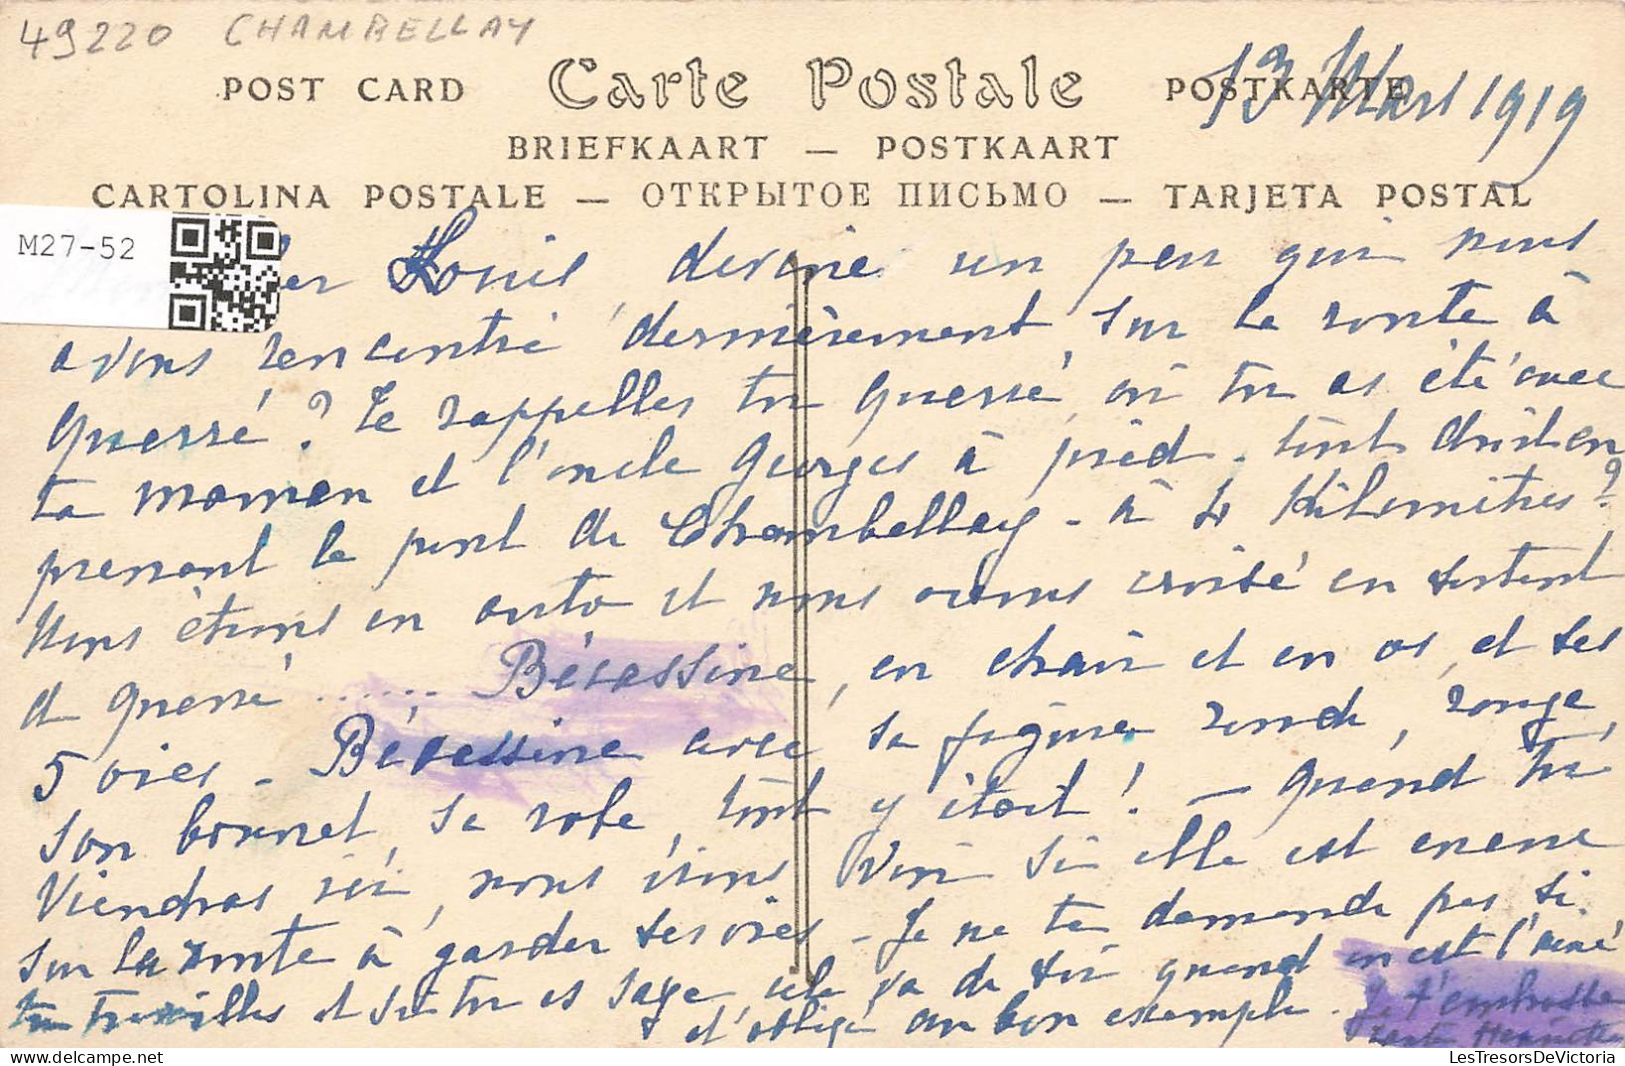 49220 CHAMBELLAY
POST CARD Carte Postale POSTKARTE
13 Mars 1919
BRIEFKAART — POSTKAART
CARTOLINA POSTALE — ОТКРЫТОЕ ПИСЬМО — TARJETA POSTAL
M27-52
Louis, devine un peu qui nous
avons rencontré dernièrement sur la route à
Querré? Te rappelles tu Querré, où tu as été avec
ta maman et l'oncle Georges à pied, tout droit en
prenant le pont de Chambellay - à 4 kilomètres?
Nous étions en auto et nous avons croisé en sortant
de Querré ...... Bécassine, en chair et en os, et ses
5 oies - Bécassine avec sa figure ronde, rouge,
son bonnet, sa robe, tout y était! — Quand tu
viendras ici, nous irons voir si elle est encore
sur la route à garder ses oies - Je ne te demande pas si
tu travailles et si tu es sage, cela va de soi quand on est l'ainé
et obligé au bon exemple. Je t'embrasse
Tante Henriette
LesTresorsDeVictoria